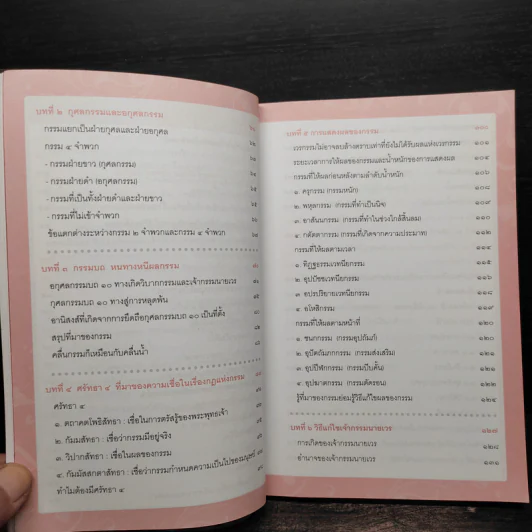 บทที่ ๒ กุศลกรรมและอกุศลกรรม
กรรมแยกเป็นฝ่ายกุศลและฝ่ายอกุศล
กรรม ๔ จำพวก
- กรรมฝ่ายขาว (กุศลกรรม)
- กรรมฝ่ายดำ (อกุศลกรรม)
- กรรมที่เป็นทั้งฝ่ายดำและฝ่ายขาว
- กรรมที่ไม่เข้าจำพวก
ข้อแตกต่างระหว่างกรรม ๒ จำพวกและกรรม ๔ จำพวก
บทที่ ๓ กรรมบถ หนทางหนีผลกรรม
อกุศลกรรมบถ ๑๐ ทางเกิดวิบากกรรมและเจ้ากรรมนายเวร
กุศลกรรมบถ ๑๐ ทางสู่การหลุดพ้น
อานิสงส์ที่เกิดจากการยึดถือกุศลกรรมบถ ๑๐ เป็นที่ตั้ง
สรุปที่มาของกรรม
คลื่นกรรมก็เหมือนกับคลื่นน้ำ
บทที่ ๔ ศรัทธา ๔ ที่มาของความเชื่อในเรื่องกฎแห่งกรรม
ศรัทธา ๔
๑. ตถาคตโพธิสัทธา : เชื่อในการตรัสรู้ของพระพุทธเจ้า
๒. กัมมสัทธา : เชื่อว่ากรรมมีอยู่จริง
๓. วิปากสัทธา : เชื่อในผลของกรรม
๔. กัมมัสสกตาสัทธา : เชื่อว่ากรรมกำหนดความเป็นไปของมนุษย์
ทำไมต้องมีศรัทธา ๔
บทที่ ๕ การแสดงผลของกรรม ๑๐๐
เวรกรรมไม่อาจลบล้างตราบเท่าที่ยังไม่ได้รับผลแห่งเวรกรรม ๑๐๑
ระยะเวลาการให้ผลของกรรมและน้ำหนักของการแสดงผล ๑๐๔
กรรมที่ให้ผลก่อนหลังตามลำดับน้ำหนัก ๑๐๖
๑. ครุกรรม (กรรมหนัก) ๑๐๘
๒. พหุลกรรม (กรรมที่ทำเป็นนิจ) ๑๐๙
๓. อาสันนกรรม (กรรมที่ทำในช่วงใกล้สิ้นลม) ๑๑๐
๔. กตัตตากรรม (กรรมที่เกิดจากความประมาท) ๑๑๒
กรรมที่ให้ผลตามเวลา ๑๑๔
๑. ทิฏฐธรรมเวทนียกรรม ๑๑๕
๒. อุปปัชชเวทนียกรรม ๑๑๖
๓. อปรปริยายเวทนียกรรม ๑๑๘
๔. อโหสิกรรม ๑๑๙
กรรมที่ให้ผลตามหน้าที่ ๑๒๐
๑. ชนกกรรม (กรรมอุปถัมภ์) ๑๒๐
๒. อุปัตถัมภกกรรม (กรรมส่งเสริม) ๑๒๑
๓. อุปปีฬกกรรม (กรรมบีบคั้น) ๑๒๑
๔. อุปฆาตกรรม (กรรมตัดรอน) ๑๒๒
รู้ที่มาของกรรมย่อมรู้วิธีแก้ไขผลของกรรม ๑๒๔
บทที่ ๖ วิธีแก้ไขเจ้ากรรมนายเวร ๑๒๗
การเกิดของเจ้ากรรมนายเวร ๑๒๘
อำนาจของเจ้ากรรมนายเวร ๑๓๑